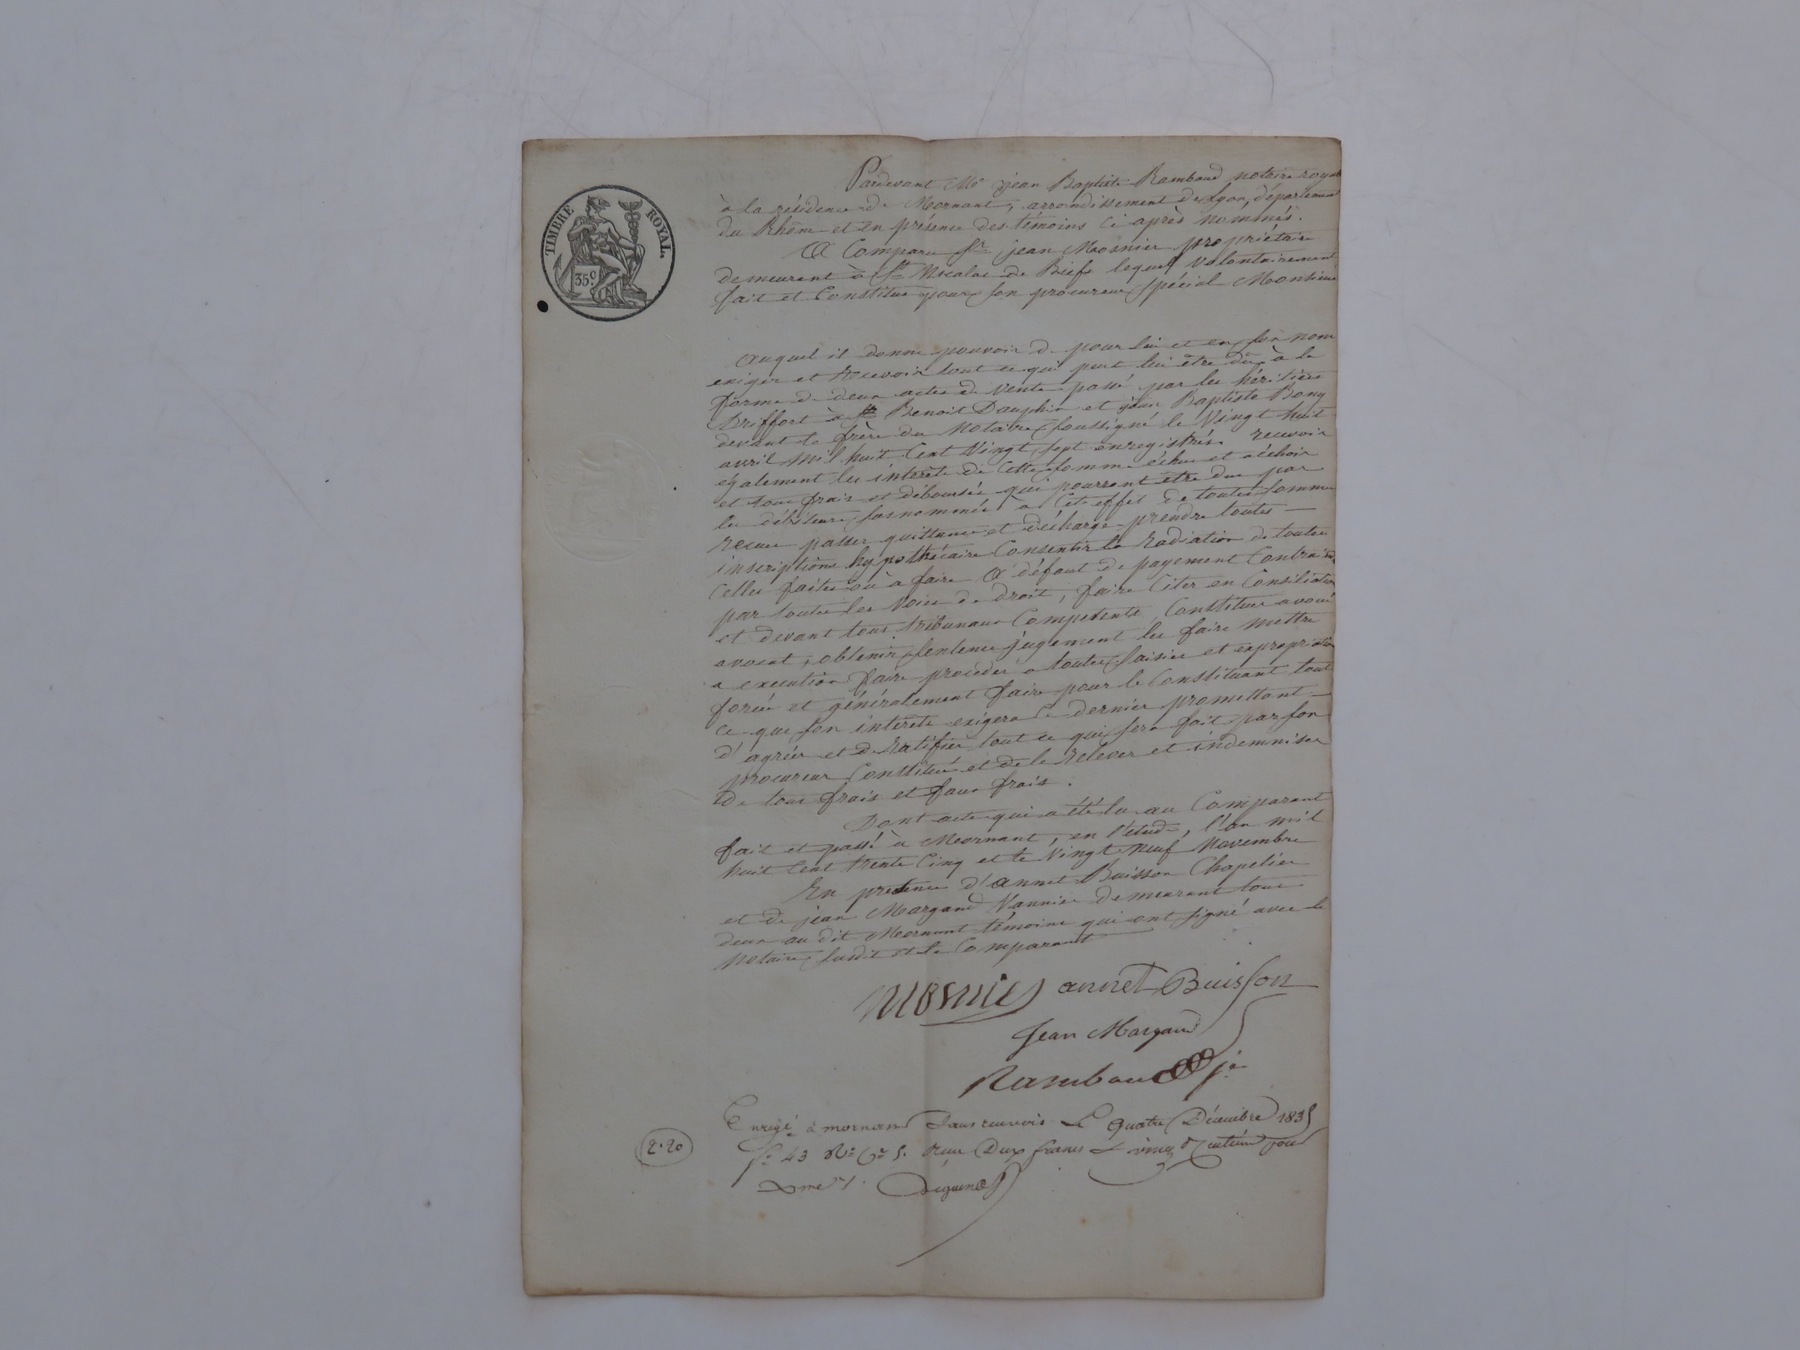 TIMBRE ROYAL
35 c.
Pardevant Me jean Baptiste Rambaud notaire royal
à la résidence de Mornant, arrondissement de Lyon, département
du Rhône et en présence des témoins ci après nommés.
A Comparu Sr. jean Mosnier propriétaire
demeurant à St. Nicolas de lequel Volontairement
fait et Constitue pour son procureur Spécial Monsieur
auquel il donne pouvoir de pour lui et en son nom
exiger et recevoir tout ce qui peut lui être dû à la
forme de deux actes de vente passé par les héritiers
Driffort à Benoit Dauphin et jean Baptiste Bony
devant le frère du Notaire soussigné le Vingt huit
avril mil huit Cent Vingt sept enregistrés recevoir
également les intérêts de cette somme échus et à échoir
et tous frais et déboursés qui pourront être dus par
les débiteurs susnommés à Cet effet de toutes sommes
recues passer quittance et décharge prendre toutes
inscriptions hypothécaire Consentir la radiation de toutes
Celles faites ou à faire A défaut de payement Contraindre
par toutes les Voies de droit, faire Citer en Consiliation
et devant tous tribunaux Competents Constituer avoué
avocat, obtenir sentence jugement les faire mettre
a execution faire procéder a toutes saisies et expropriation
forcée et généralement faire pour le Constituant tout
ce que son intérêts exigera Ce dernier promettant
d'agréer et de Ratifier tout ce qui sera fait par son
procureur Constitué et de le relever et indemniser
de tous frais et faux frais.
Dont acte qui a été lu au Comparant
fait et passé à Mornant, en l'étude, l'an mil
huit Cent trente Cinq et le Vingt neuf Novembre
En présence d'annet Buisson Chapelier
et de jean Margand Vannier demeurant tous
deux au dit Mornant témoins qui ont signé avec le
Notaire susdit et le Comparant
Mosnier annet Buisson
Jean Margand
Rambaud je
Enregé à mornant Sans renvois Le quatre Décembre 1835
fo 43 Ro Ce 5. Reçu Deux francs et vingt Centimes pour
2.20